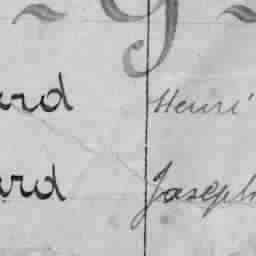 ~ g ~
ard Henri
ard Joseph